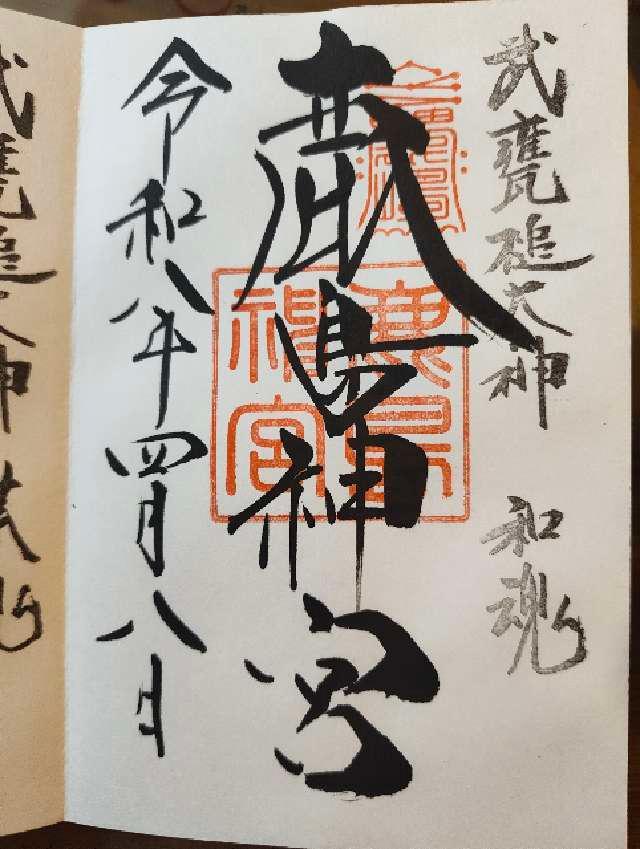 武甕槌大神 和魂
鹿島神宮
鹿島神宮
令和八年四月八日
武甕槌大神 荒魂